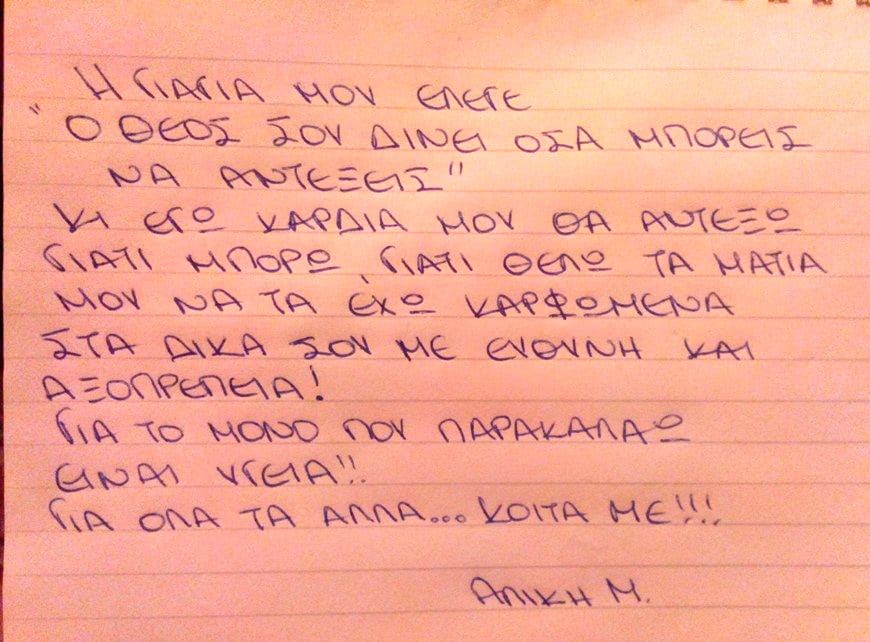 Η ΓΙΑΓΙΑ ΜΟΥ ΕΛΕΓΕ
"Ο ΘΕΟΣ ΣΟΥ ΔΙΝΕΙ ΟΣΑ ΜΠΟΡΕΙΣ
ΝΑ ΑΝΤΕΞΕΙΣ"
ΚΙ ΕΓΩ ΚΑΡΔΙΑ ΜΟΥ ΘΑ ΑΝΤΕΞΩ
ΓΙΑΤΙ ΜΠΟΡΩ, ΓΙΑΤΙ ΘΕΛΩ ΤΑ ΜΑΤΙΑ
ΜΟΥ ΝΑ ΤΑ ΕΧΩ ΚΑΡΦΩΜΕΝΑ
ΣΤΑ ΔΙΚΑ ΣΟΥ ΜΕ ΕΥΘΥΝΗ ΚΑΙ
ΑΞΟΠΡΕΠΕΙΑ!
ΓΙΑ ΤΟ ΜΟΝΟ ΠΟΥ ΠΑΡΑΚΑΛΑΩ
ΕΙΝΑΙ ΥΓΕΙΑ!!
ΓΙΑ ΟΛΑ ΤΑ ΑΛΛΑ... ΚΟΙΤΑ ΜΕ!!!
ΑΛΙΚΗ Μ.